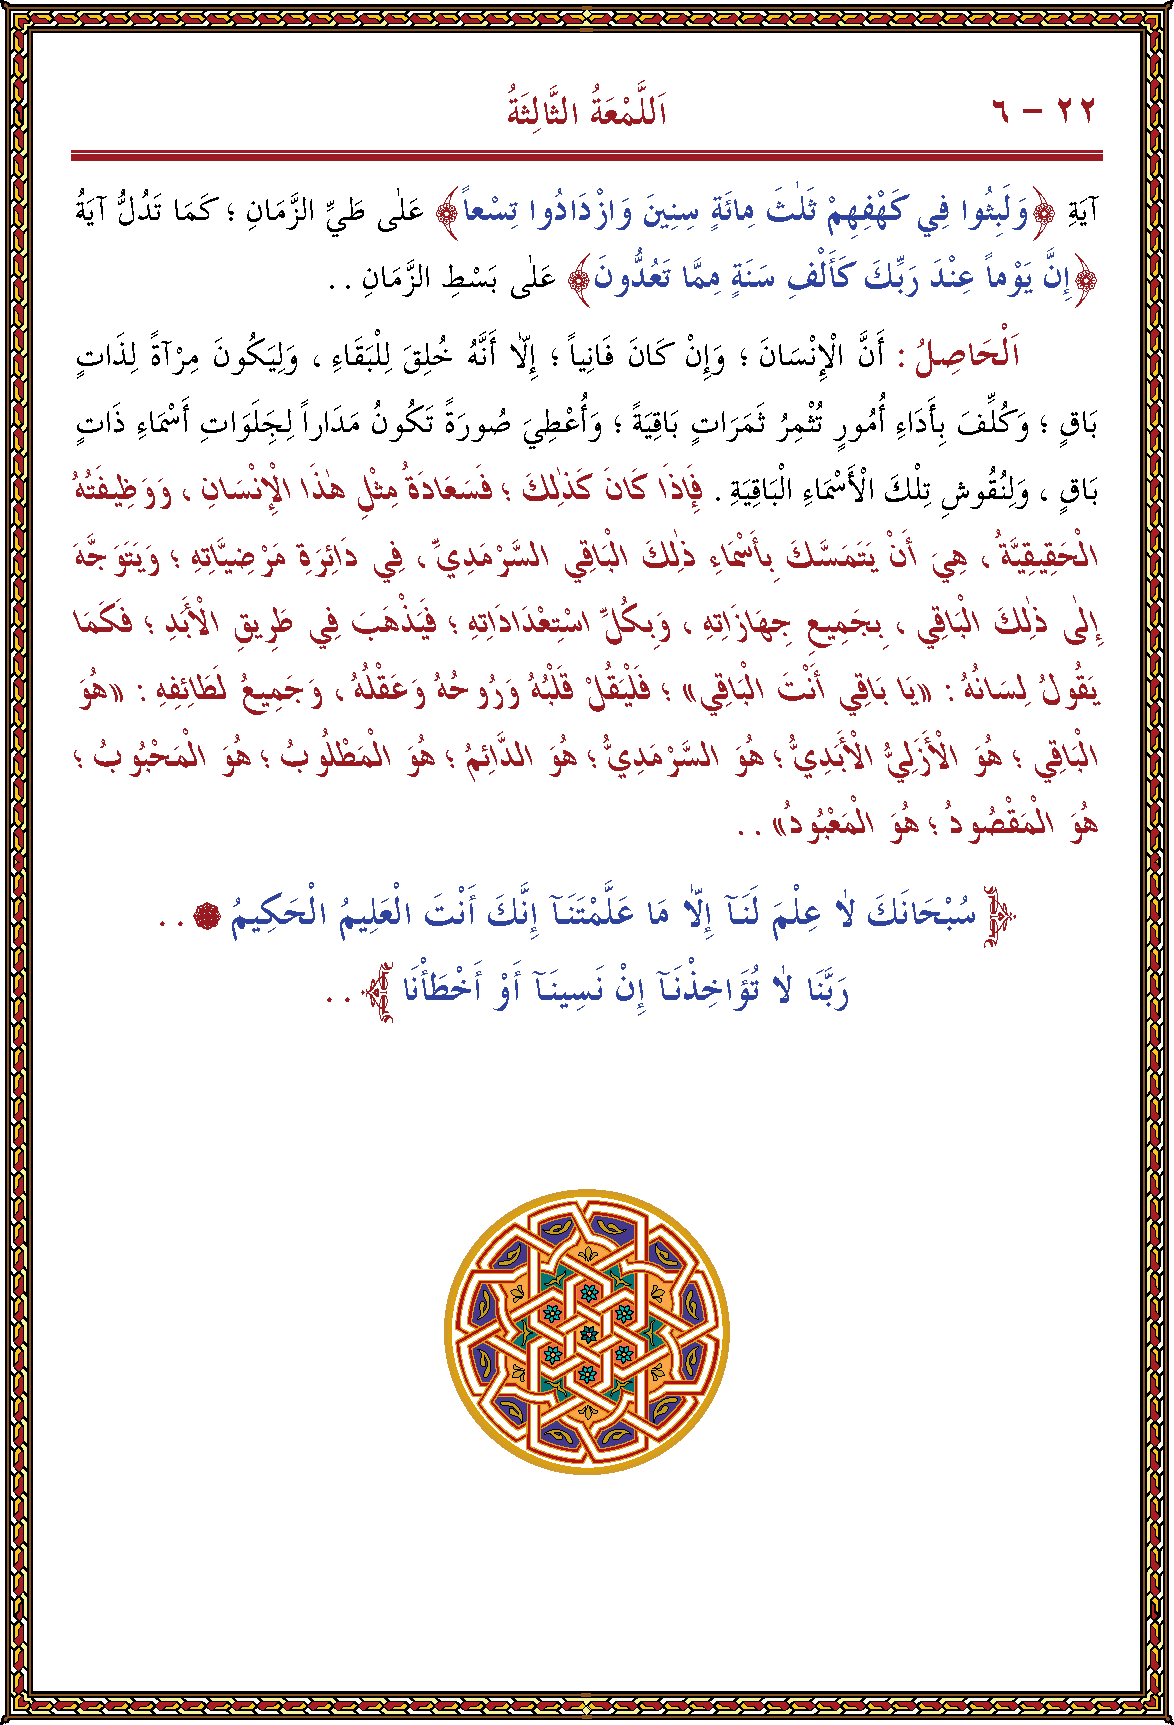 ٢٢ – ٦ اَللَّمْعَةُ الثَّالِثَةُ
آيَةِ ﴿وَلَبِثُوا فِي كَهْفِهِمْ ثَلٰثَ مِائَةٍ سِنِينَ وَازْدَادُوا تِسْعاً﴾ عَلٰى طَيِّ الزَّمَانِ ؛ كَمَا تَدُلُّ آيَةُ
﴿إِنَّ يَوْماً عِنْدَ رَبِّكَ كَأَلْفِ سَنَةٍ مِمَّا تَعُدُّونَ﴾ عَلٰى بَسْطِ الزَّمَانِ . .
اَلْحَاصِلُ : أَنَّ الْإِنْسَانَ ؛ وَإِنْ كَانَ فَانِياً ؛ إِلَّا أَنَّهُ خُلِقَ لِلْبَقَاءِ ، وَلِيَكُونَ مِرْآةً لِذَاتٍ
بَاقٍ ؛ وَكُلِّفَ بِأَدَاءِ أُمُورٍ تُثْمِرُ ثَمَرَاتٍ بَاقِيَةً ؛ وَأُعْطِيَ صُورَةً تَكُونُ مَدَاراً لِجِلَوَاتِ أَسْمَاءِ ذَاتٍ
بَاقٍ ، وَلِنُقُوشِ تِلْكَ الْأَسْمَاءِ الْبَاقِيَةِ . فَإِذَا كَانَ كَذٰلِكَ ؛ فَسَعَادَةُ مِثْلِ هٰذَا الْإِنْسَانِ ، وَوَظِيفَتُهُ
الْحَقِيقِيَّةُ ، هِيَ أَنْ يَتَمَسَّكَ بِأَسْمَاءِ ذٰلِكَ الْبَاقِي السَّرْمَدِيِّ ، فِي دَائِرَةِ مَرْضِيَّاتِهِ ؛ وَيَتَوَجَّهَ
إِلٰى ذٰلِكَ الْبَاقِي ، بِجَمِيعِ جِهَازَاتِهِ ، وَبِكُلِّ اسْتِعْدَادَاتِهِ ؛ فَيَذْهَبَ فِي طَرِيقِ الْأَبَدِ ؛ فَكَمَا
يَقُولُ لِسَانُهُ : «يَا بَاقِي أَنْتَ الْبَاقِي» ؛ فَلْيَقُلْ قَلْبُهُ وَرُوحُهُ وَعَقْلُهُ ، وَجَمِيعُ لَطَائِفِهِ : «هُوَ
الْبَاقِي ؛ هُوَ الْأَزَلِيُّ الْأَبَدِيُّ ؛ هُوَ السَّرْمَدِيُّ ؛ هُوَ الدَّائِمُ ؛ هُوَ الْمَطْلُوبُ ؛ هُوَ الْمَحْبُوبُ ؛
هُوَ الْمَقْصُودُ ؛ هُوَ الْمَعْبُودُ» . .
سُبْحَانَكَ لَا عِلْمَ لَنَآ إِلَّا مَا عَلَّمْتَنَآ إِنَّكَ أَنْتَ الْعَلِيمُ الْحَكِيمُ . .
رَبَّنَا لَا تُؤَاخِذْنَآ إِنْ نَسِينَآ أَوْ أَخْطَأْنَا . .